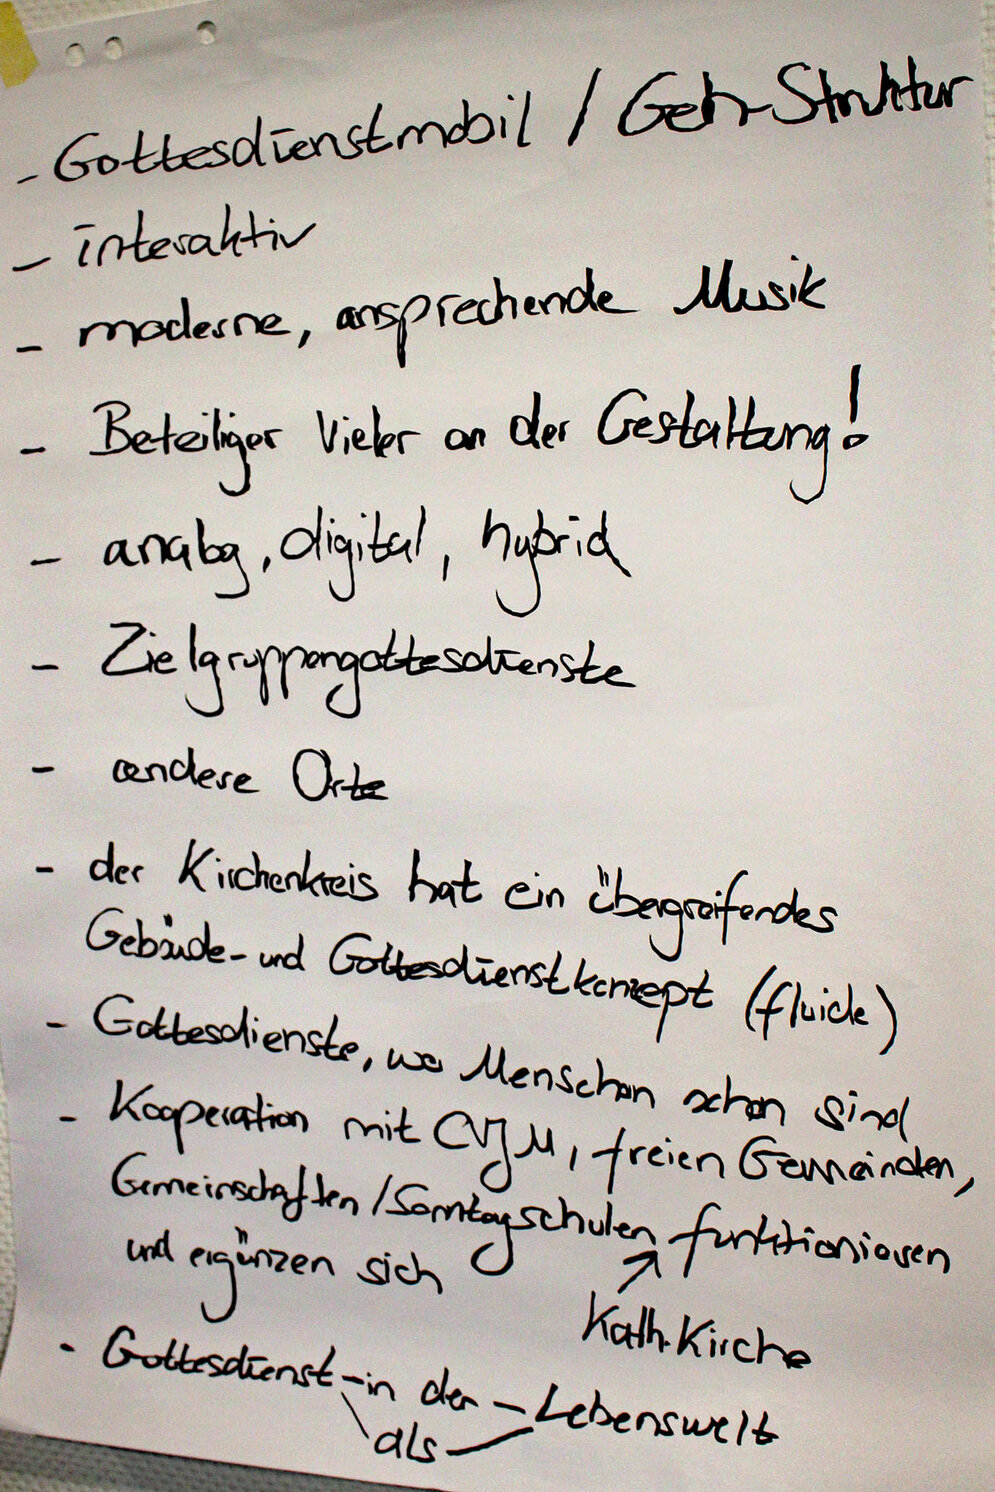 - Gottesdienstmobil / Geh-Struktur
- interaktiv
- moderne, ansprechende Musik
- Beteiliger Vieler an der Gestaltung!
- analog, digital, hybrid
- Zielgruppengottesdienste
- andere Orte
- der Kirchenkreis hat ein übergreifendes
Gebäude- und Gottesdienstkonzept (fluide)
- Gottesdienste, wo Menschen schon sind
- Kooperation mit CVJM, freien Gemeinden,
Gemeinschaften / Sonntagschulen funktionieren
und ergänzen sich
Kath. Kirche
- Gottesdienst - in der - Lebenswelt
als